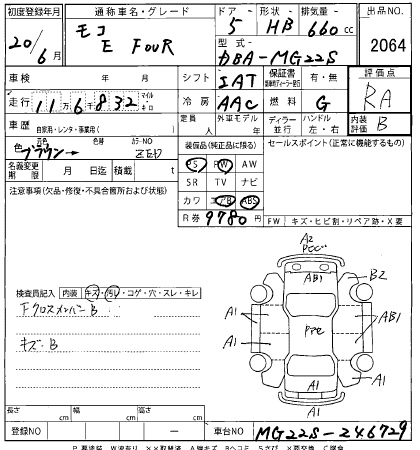 初度登録年月 通称車名・グレード ドア 形状 排気量 出品NO
20/6月 モコ E FOUR 5 HB 660 cc 2064
型式 DBA-MG22S
車検 年 月 シフト IAT 保証書 有・無 評価点
走行 11万6千832 マイル キロ 冷房 AAC 燃料 G RA
車歴 自家用・レンタ・事業用( ) 定員 人 外車モデル 年 ディーラー 並行 ハンドル 左・右 内装評価 B
色 ブラウン 元色 色替 カラーNO ZED 装備品(純正品に限る) セールスポイント(正常に機能するもの)
PS PW AW
名義変更期限 月 日迄 積載 t SR TV ナビ
注意事項(欠品・修復・不具合箇所および状態) カワ エアB ABS
R券 9780 円 FW キズ・ヒビ割・リペア跡・X要
A2
PCC
AB1 B2
検査員記入 内装 キズ・汚レ・コゲ・穴・スレ・キレ
Fクロスメンバー B A1 PPC AB1
キズ・B A1
A1 A1
A1
長さ cm 幅 cm 高さ cm
登録NO ー 車台NO MG22S-246729
P.要塗装 W.波有り XX.取替済 A.線キズ B.ヘコミ S.さび X.要交換 C.腐食